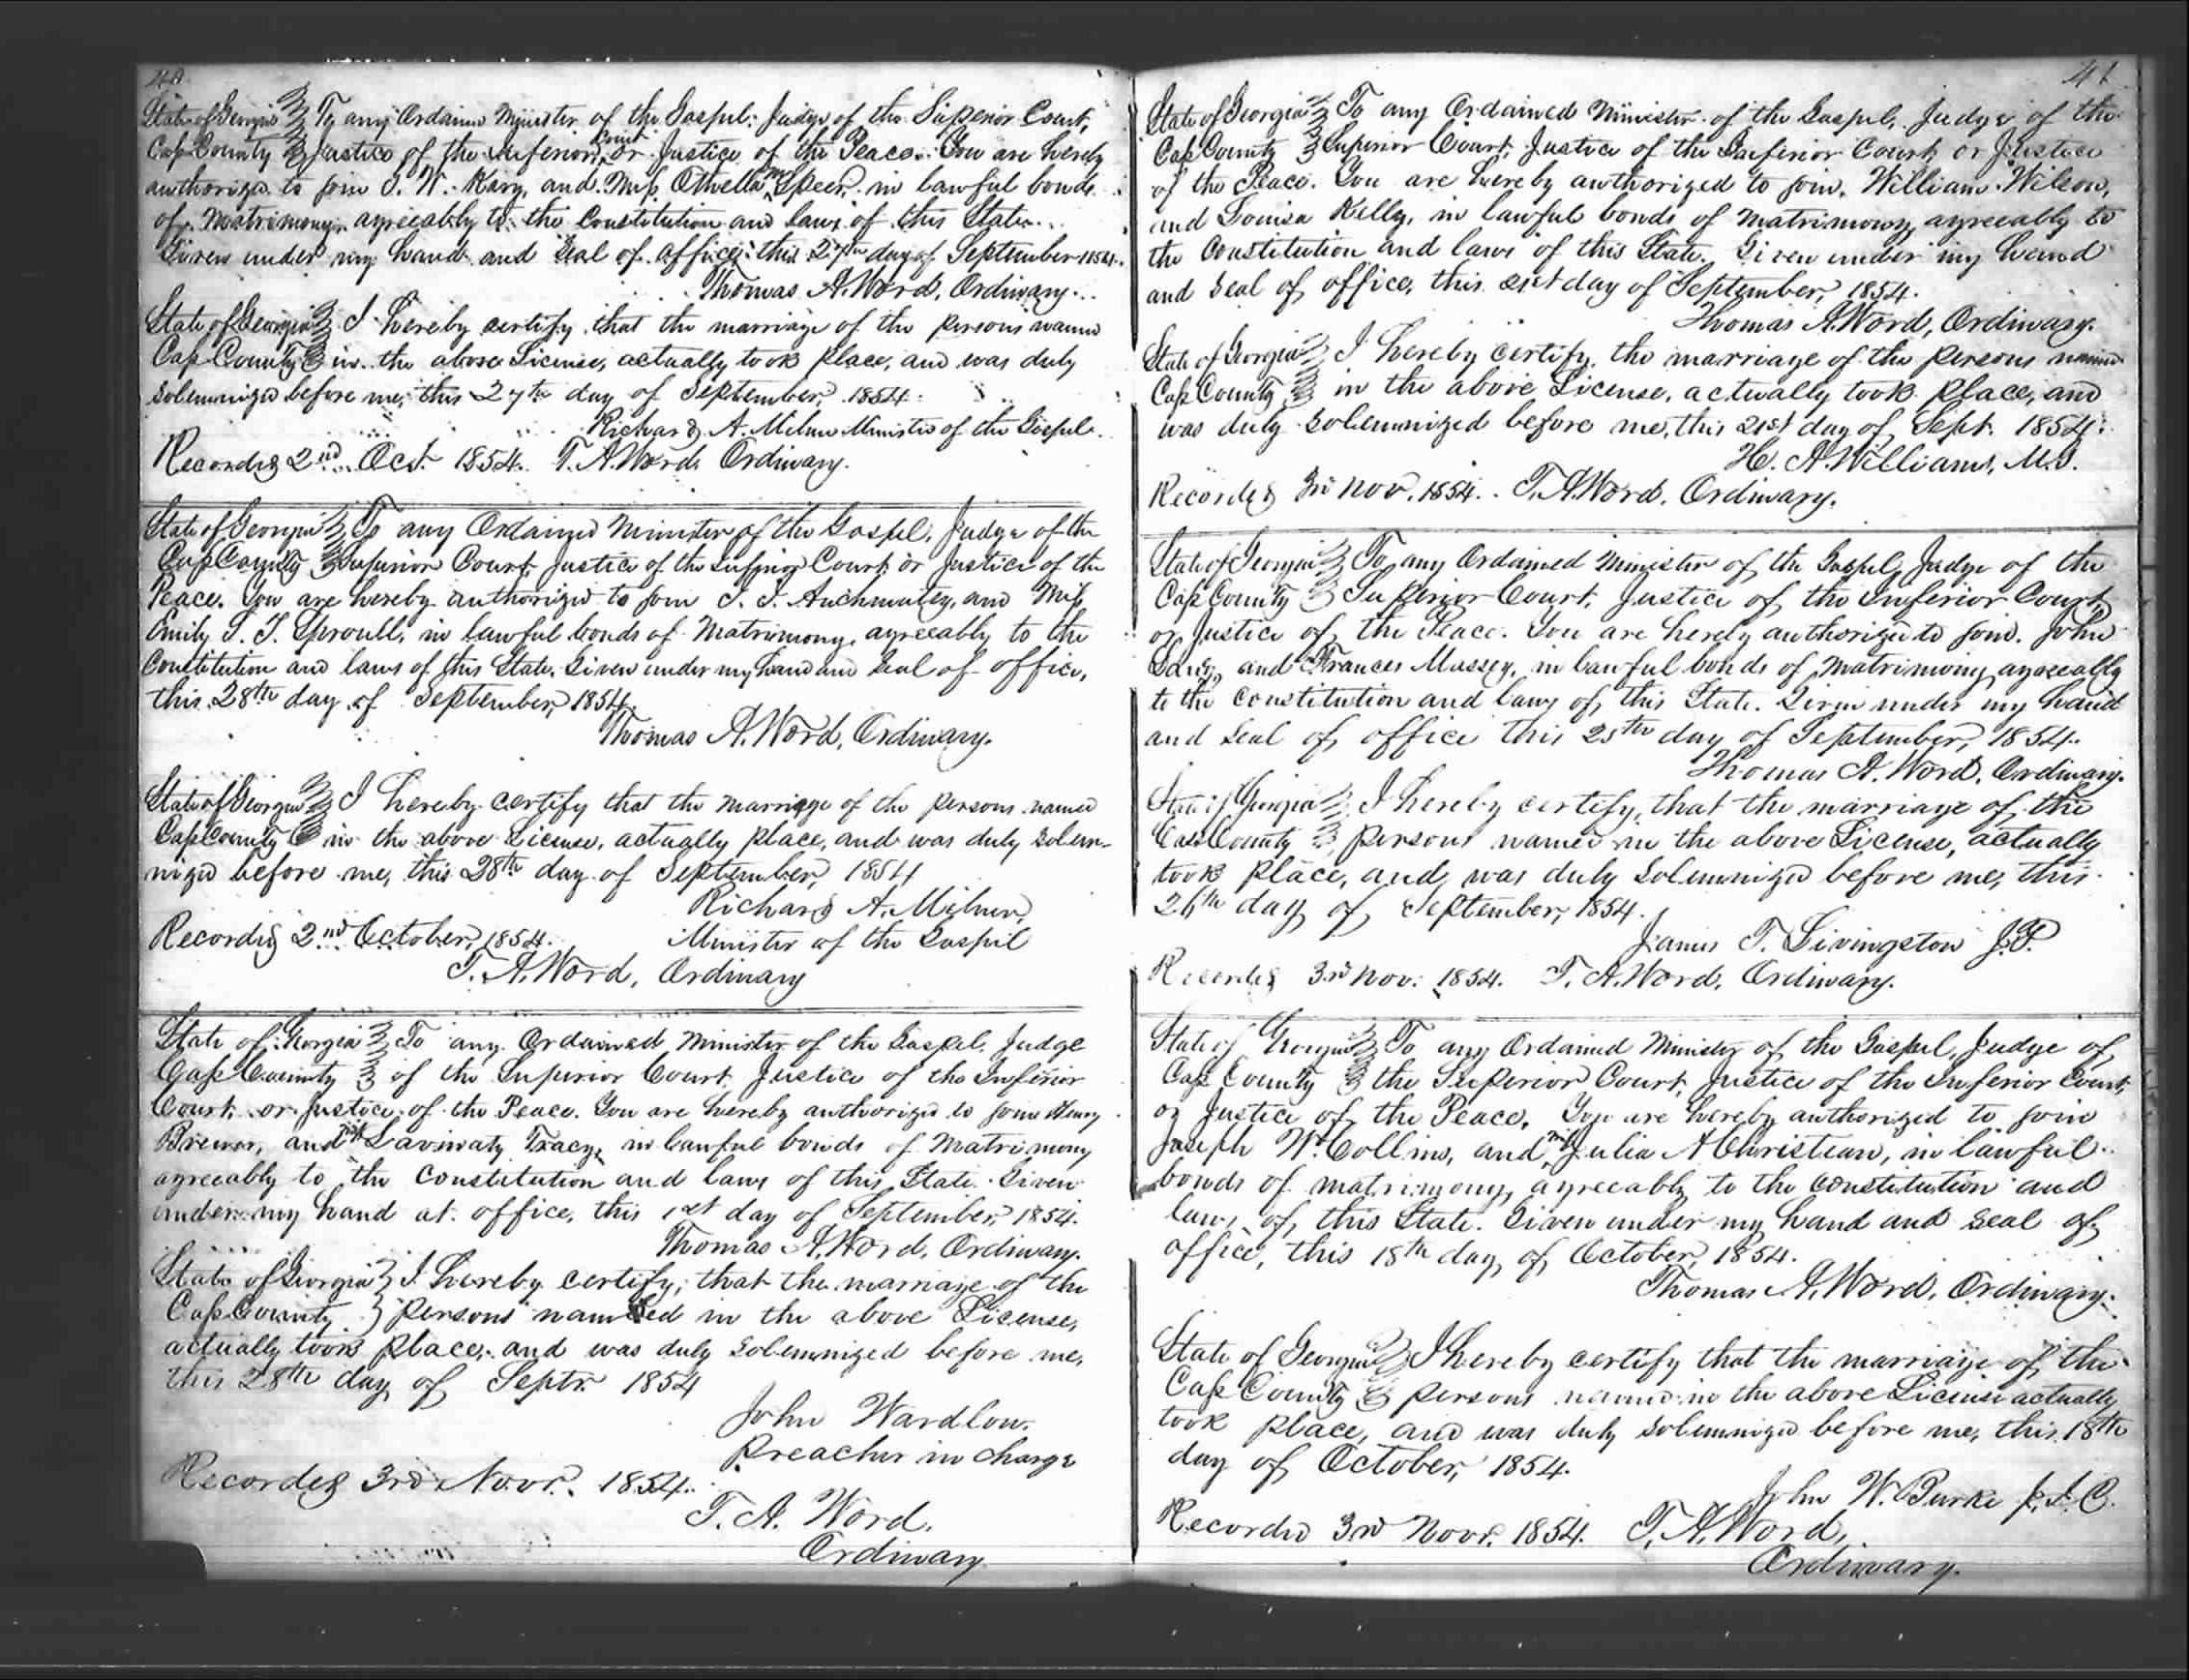 40
State of Georgia } To any Ordained Minister of the Gospel. Judge of the Superior Court,
Cass County } Justice of the Inferior Court or Justice of the Peace. You are hereby
authorized to join J. W. and Miss Othella Speer, in lawful bonds
of Matrimony, agreeably to the Constitution and laws of this State.
Given under my hand and seal of office this 27th day of September 1854.
Thomas A. Word, Ordinary.
State of Georgia } I hereby certify that the marriage of the persons named
Cass County } in the above License, actually took place, and was duly
solemnized before me, this 27th day of September, 1854.
Richard A. Milner Minister of the Gospel.
Recorded 2nd Oct. 1854. T. A. Word, Ordinary.
State of Georgia } To any Ordained Minister of the Gospel, Judge of the
Cass County } Superior Court, Justice of the Inferior Court or Justice of the
Peace. You are hereby authorized to join Auchmutey, and Miss
Emily Sproull, in lawful bonds of Matrimony, agreeably to the
Constitution and laws of this State. Given under my hand and seal of office,
this 28th day of September, 1854.
Thomas A. Word, Ordinary.
State of Georgia } I hereby certify that the marriage of the persons named
Cass County } in the above License, actually place, and was duly solem-
nized before me, this 28th day of September, 1854
Richard A. Milner,
Recorded 2nd October, 1854. Minister of the Gospel
T. A. Word, Ordinary
State of Georgia } To any Ordained Minister of the Gospel, Judge
Cass County } of the Superior Court Justice of the Inferior
Court or Justice of the Peace. You are hereby authorized to join Henry
Brewer, and Miss Tracy, in lawful bonds of Matrimony
agreeably to the Constitution and laws of this State. Given
under my hand at office, this 1st day of September, 1854.
Thomas A. Word, Ordinary.
State of Georgia } I hereby certify, that the marriage of the
Cass County } persons named in the above License,
actually took place, and was duly solemnized before me,
this 28th day of Septr. 1854
John Wardlow.
Preacher in charge
Recorded 3rd Novr. 1854.
T. A. Word,
Ordinary
41
State of Georgia } To any Ordained Minister of the Gospel, Judge of the
Cass County } Superior Court, Justice of the Inferior Court or Justice
of the Peace. You are hereby authorized to join, William Wilson,
and Louisa Kelly, in lawful bonds of Matrimony agreeably to
the Constitution and laws of this State. Given under my hand
and seal of office, this 21st day of September, 1854.
Thomas A. Word, Ordinary.
State of Georgia } I hereby certify, the marriage of the persons named
Cass County } in the above License, actually took place, and
was duly solemnized before me, this 21st day of Sept. 1854.
H. A. Williams, M.G.
Recorded 3rd Nov. 1854. T. A. Word, Ordinary.
State of Georgia } To any Ordained Minister of the Gospel, Judge of the
Cass County } Superior Court, Justice of the Inferior Court,
or Justice of the Peace. You are hereby authorized to join, John
and Frances Massey, in lawful bonds of Matrimony, agreeably
to the Constitution and laws of this State. Given under my hand
and seal of office this 25th day of September, 1854.
Thomas A. Word, Ordinary.
State of Georgia } I hereby certify, that the marriage of the
Cass County } persons named in the above License, actually
took place, and was duly solemnized before me, this
26th day of September, 1854.
James T. Livingston J.P.
Recorded 3rd Nov. 1854. T. A. Word, Ordinary.
State of Georgia } To any Ordained Minister of the Gospel, Judge of
Cass County } the Superior Court, Justice of the Inferior Court,
or Justice of the Peace. You are hereby authorized to join
Joseph W. Collins, and Miss Julia A Christian, in lawful
bonds of matrimony, agreeably to the Constitution and
laws of this State. Given under my hand and seal of
office, this 18th day of October, 1854.
Thomas A. Word, Ordinary.
State of Georgia } I hereby certify that the marriage of the
Cass County } persons named in the above License actually
took place, and was duly solemnized before me, this 18th
day of October, 1854.
John W. Burke
Recorded 3rd Novr. 1854. T. A. Word,
Ordinary.